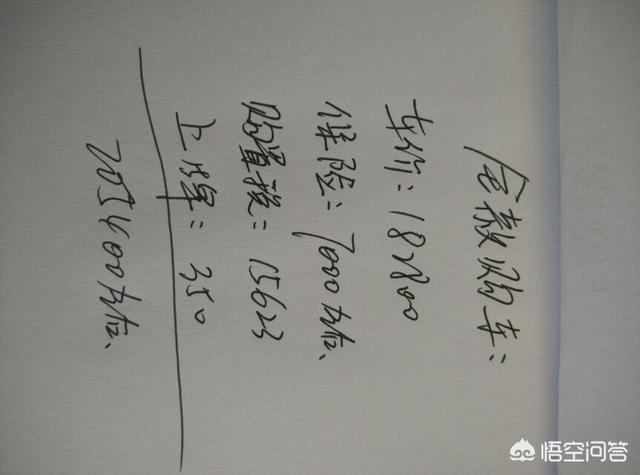 全款购车：
车价：182800
保险：7000左右、
购置税：15623
上牌：350
205400左右、
悟空问答